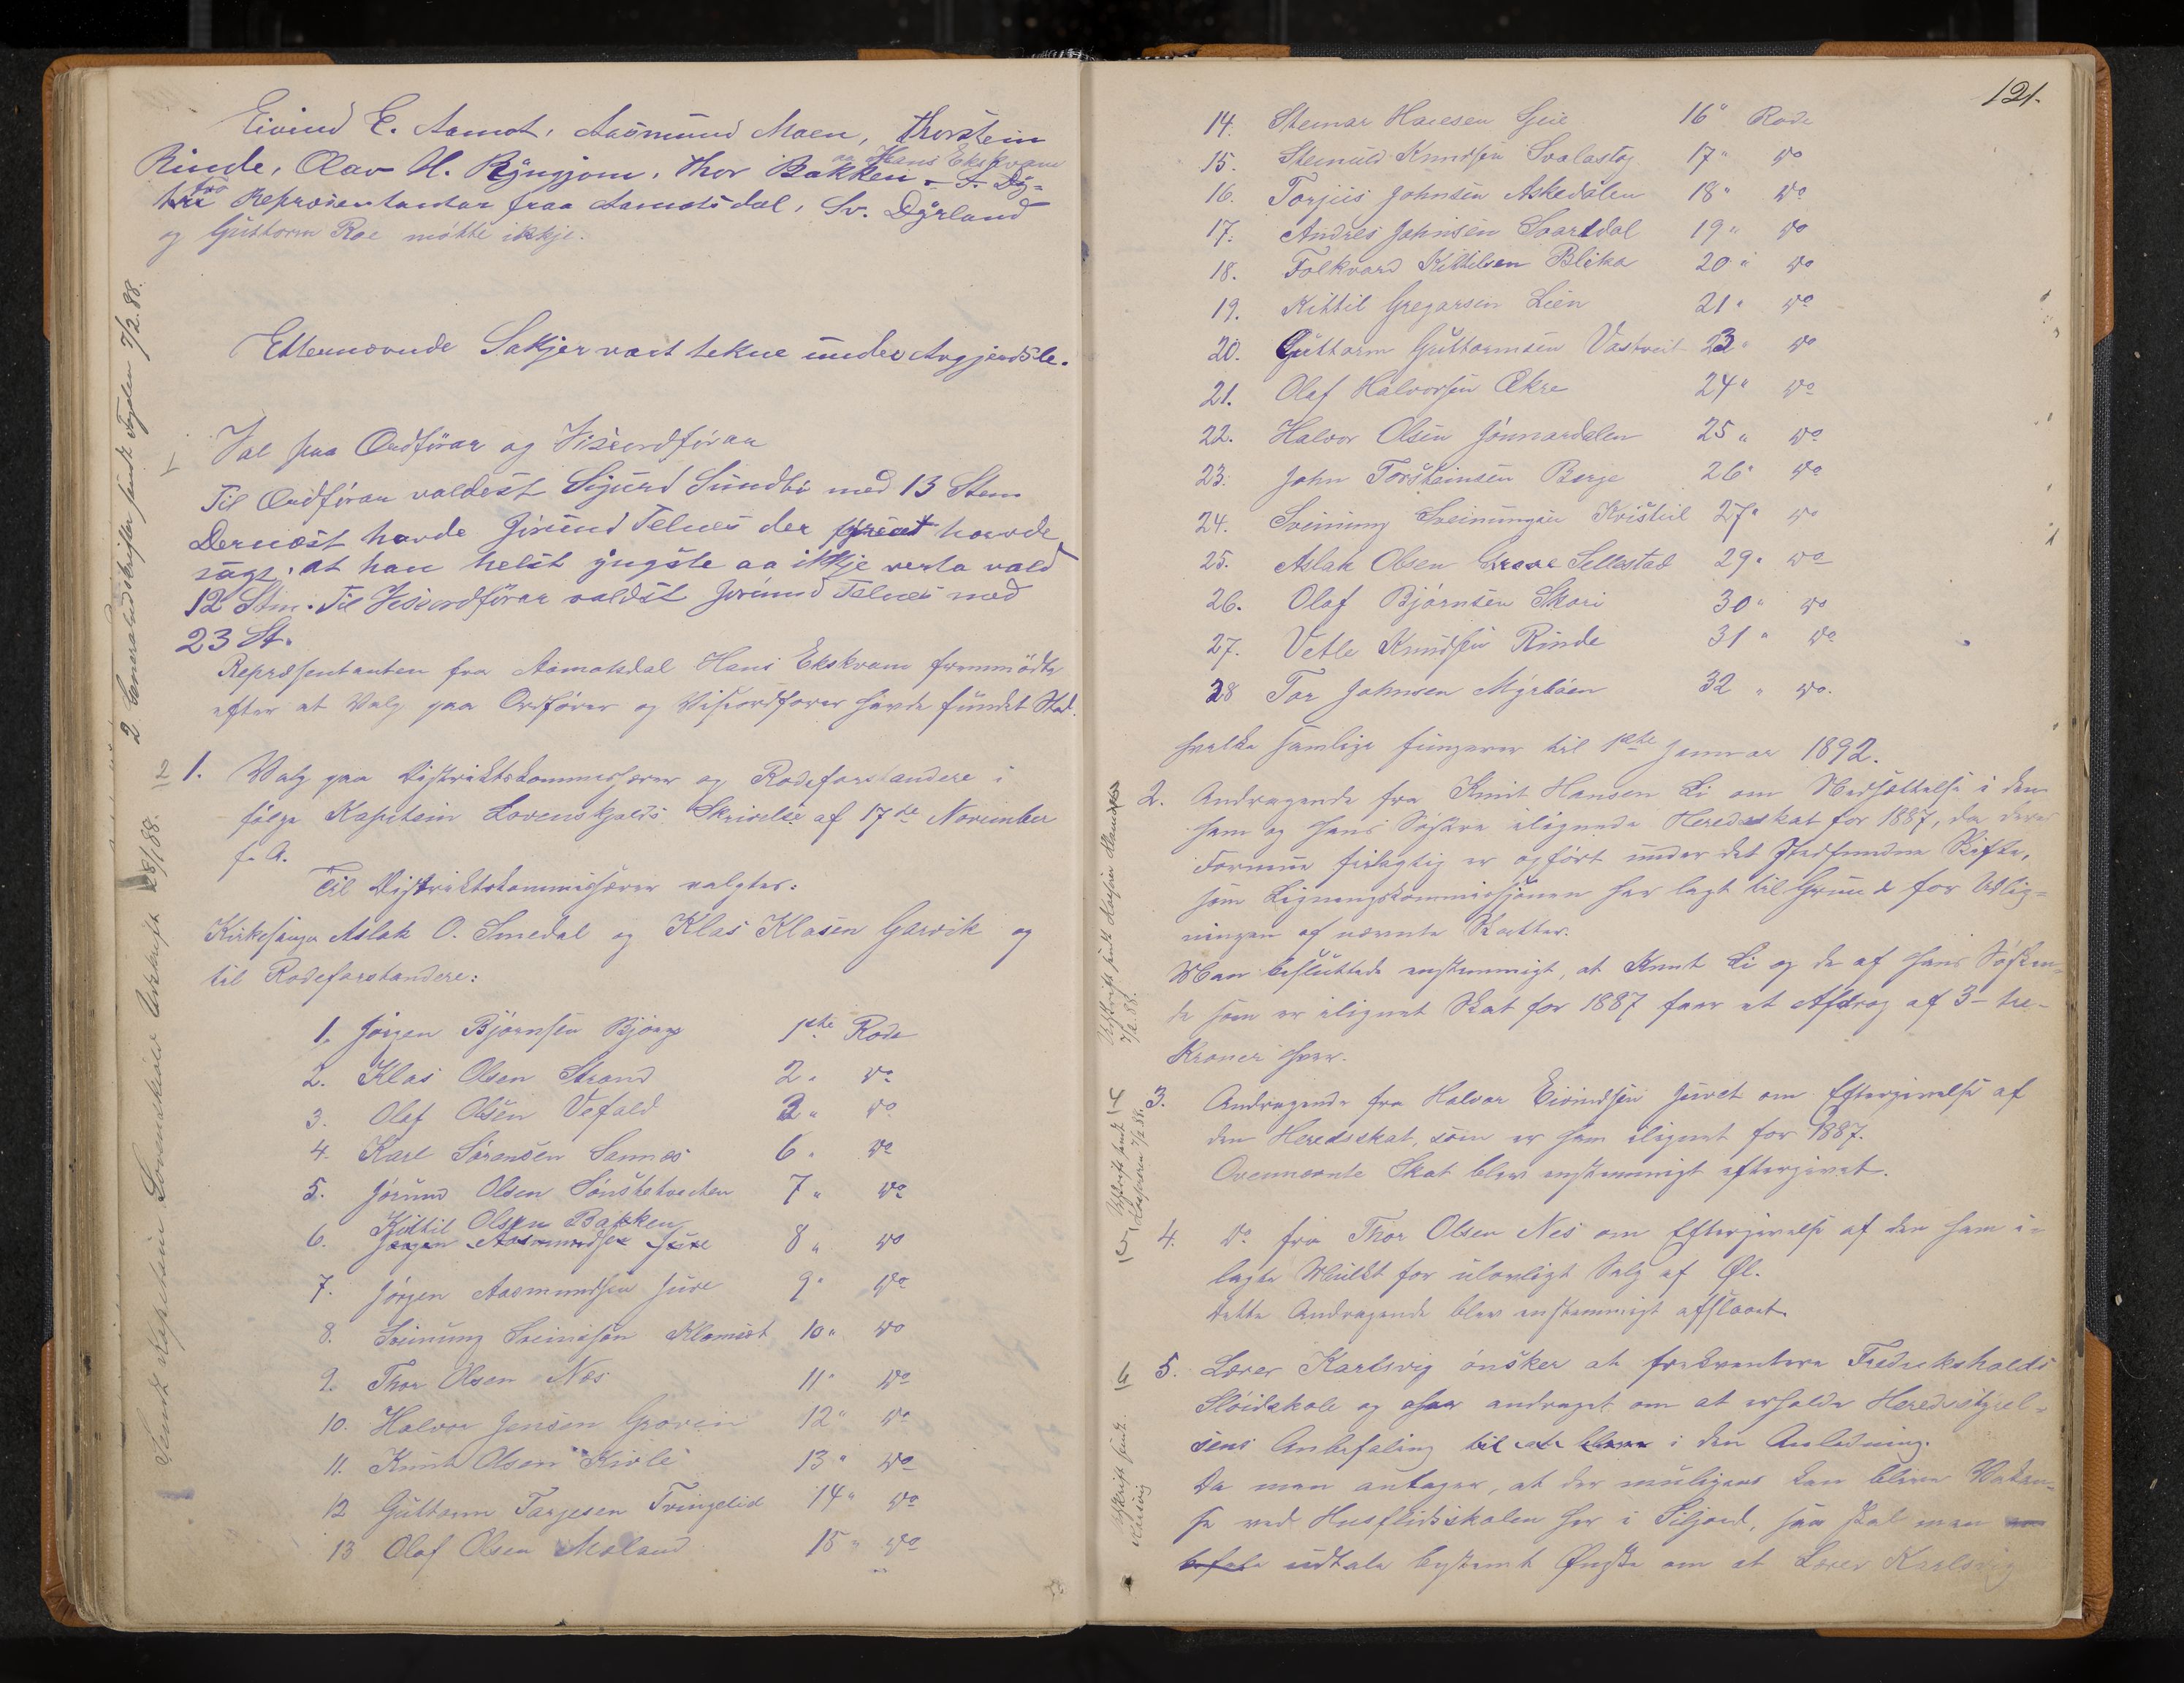 Eivind E. Aamot, Aasmund Moen, Thorstein
Rinde, Olav H. Ryngjom, Thor Bakken og Hans Ekskvam
to Repræsentantar fraa Aamotsdal, Sv. Dyrland
og Guttorm Roe møtte ikkje.
Etternævnde Sakjer vart tekne under Avgjerdsle.
I
Val paa Ordførar og Viseordførar
Til Ordførar valdest Sigurd Sundbø med 13 Stem
Dernæst havde Jørund Telnes der havde
sagt, at han helst yngste aa ikkje verta vald
12 Stm. Til Viseordførar valdst Jørund Telnes med
23 St.
Repræsentanten fra Aamotsdal Hans Ekskvam fremmødte
efter at Valg paa Ordfører og Viseordfører havde fundet Sted.
1. Valg paa Distriktskommissærer og Rodeforstandere i
følge Kapitein Lovenskjolds Skrivelse af 17de November
f. A.
Til Distriktskommissærer valgtes:
Kirkesanger Aslak O. Smedal og Klas Klasen Garvik og
til Rodeforstandere:
1. Jørgen Bjørnsen Bjørge 1ste Rode
2. Klas Olsen Strand 2 " do
3. Olaf Olsen Vefald 3 " do
4. Karl Sørensen Sannes 6 " do
5. Jørund Olsen Sønstetveiten 7 " do
Kittil Olsen Bakken
6. Jørgen Aasmundsen Juve 8 " do
7. Jørgen Aasmundsen Juve 9 " do
8. Sveinung Sveinsson 10 " do
9. Thor Olsen Nes 11 " do
10. Halvor Jensen Grovin 12 " do
11. Knut Olsen Kivle 13 " do
12 Guttorm Tarjesen Tvingelid 14 " do
13 Olaf Olsen Moland 15 " do
2 Eneraludskrifter sendt Fogden 7/2.88.
Sendt Kapitein Lovenskiold Udskrift 28/1 88.
121.
14. Steinar Hansen 16 " Rode
15. Steinuld Knudsen Svalastog 17 " do
16. Torjus Johnsen Askedalen 18 " do
17. Andres Johnsen Svartdal 19 " do
18. Folkvard Kittilsen Blika 20 " do
19. Kittil Gregarsen Lien 21 " do
20. Guttorm Guttormsen Vastveit 23 " do
21. Olaf Halvorsen Ekre 24 " do
22. Halvor Olsen Jønnardalen 25 " do
23. John Torsteinsen Berge 26 " do
24. Sveinung Sveinungsen 27 " do
25. Aslak Olsen Sellestad 29 " do
26. Olaf Bjørnsen Skori 30 " do
27. Vetle Knudsen Rinde 31 " do
28 Tor Johnsen Myrbøen 32 " do.
hvilke samlige fungerer til 1ste Januar 1892.
2. Andragende fra Knut Hansen Li om Nedsættelse i den
ham og hans Søskende ilignede Heredsskat for 1887, da deres
Formue feilagtig er opført under det stedfundne Skifte,
som Ligningskommissjonen har lagt til Grund for Udlig-
ningen af nævnte Skatter.
Man besluttede enstemmigt, at Knut Li og de af hans Søsken-
de som er ilignet Skat for 1887 faar et Afdrag af 3 - tre -
Kroner hver.
3. Andragende fra Halvor Eivindsen Juvet om Eftergivelse af
den Heredsskat, som er ham ilignet for 1887.
Ovennævnte Skat blev enstemmigt eftergivet.
4. do fra Thor Olsen Nes om Eftergivelse af den ham i-
lagte Mulkt for ulovligt Salg af Øl.
Dette Andragende blev enstemmigt afslaaet.
5. Lærer Karlsvig ønsker at frekventere Fredrikshalds
Sløidskole og har andraget om at erholde Heredsstyrel-
sens Anbefaling til at blive i den Anledning.
Da man antager, at der muligens kan blive Vakan-
se ved Husflidsskolen her i Siljord, saa skal man an
befale udtale bestemt Ønske om at Lærer Karlsvig
Udskrift sendt Kasserer
7/2.88.
Udskrift sendt
Kasseren 7/2 88.
Udskrift sendt
Karlsvig